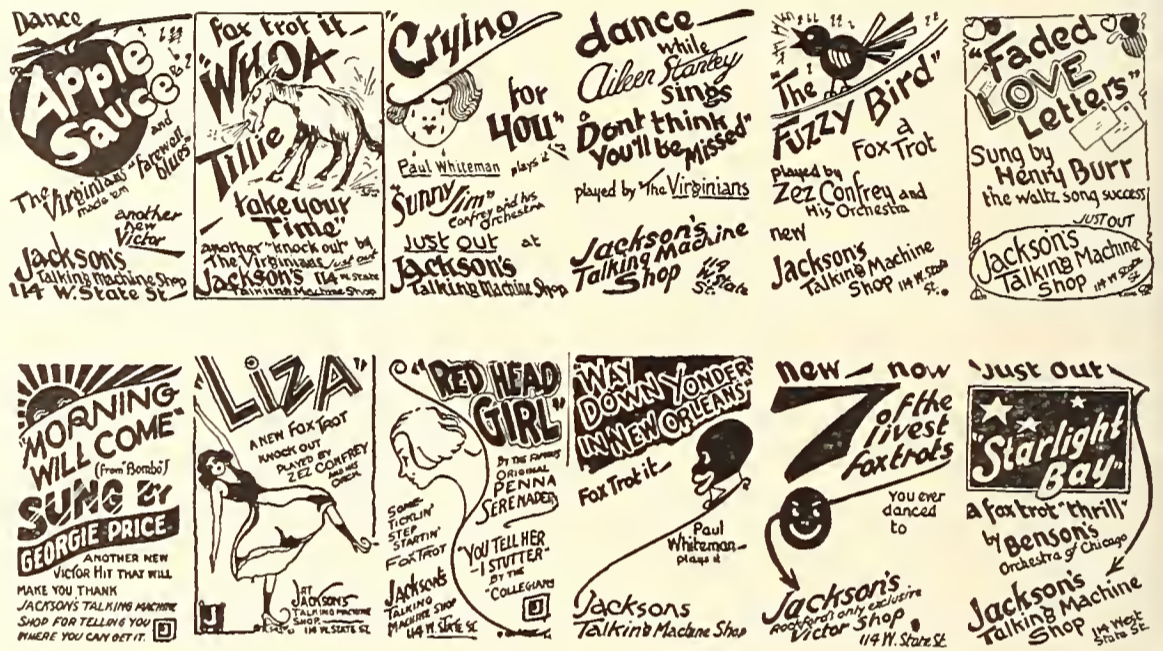 Dance
"Apple
Sauce"
and
"farewell
blues"
The Virginians
made 'em
another
new
Victor
Jackson's
Talking Machine Shop
114 W. State St.
Fox trot it
"WHOA
Tillie
take your
Time"
another "knock out" by
The Virginians Just out
Jackson's 114 W. State
Talking Machine Shop
"Crying
for
you"
Paul Whiteman plays it
"Sunny
Jim"
Confrey and his
orchestra
Just out at
Jackson's
Talking Machine Shop
dance
while
Aileen Stanley
sings
"Dont think
you'll be Missed"
played by The Virginians
Jackson's
Talking Machine
Shop 114
W. State
St.
"The
Fuzzy Bird"
a
Fox Trot
played by
Zez Confrey and
His Orchestra
new
Jackson's
Talking Machine
Shop 114 W. State
St.
"Faded
LOVE
Letters"
Sung by
Henry Burr
the waltz song success
JUST OUT
Jackson's
Talking Machine
Shop 114 W. State
St.
"MORNING
WILL COME"
(From Bombo)
SUNG BY
GEORGIE PRICE
ANOTHER NEW
VICTOR HIT THAT WILL
MAKE YOU THANK
JACKSON'S TALKING MACHINE
SHOP FOR TELLING YOU
WHERE YOU CAN GET IT. J
"LIZA"
A NEW FOX TROT
KNOCK OUT
PLAYED BY
ZEZ CONFREY
AND HIS
ORCH.
AT
JACKSON'S
TALKING MACHINE
SHOP
114 W. STATE ST.
J
"RED HEAD
GIRL"
BY THE FAMOUS
ORIGINAL
PENNA
SERENADERS
SOME
TICKLIN'
STEP
STARTIN'
FOXTROT
"YOU TELL HER
I STUTTER"
BY THE
"COLLEGIANS
Jackson's
TALKING
MACHINE SHOP
114 W. STATE ST.
J
"WAY
DOWN YONDER
IN NEW ORLEANS"
Fox Trot it
Paul
Whiteman
plays it
Jacksons
Talking Machine Shop
new now
7 of the
livest
foxtrots
You ever
danced
to
Jackson's
Rockford's only exclusive
Victor Shop
114 W. State St.
Just out
"Starlight
Bay"
a fox trot "thrill"
by Benson's
Orchestra of Chicago
Jackson's
Talking Machine
Shop 114 West
State St.